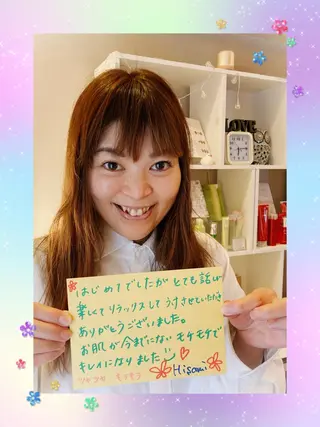 LOVE
はじめてでしたが とても話が
楽しくて リラックスして うけさせていただき
ありがとうございました。
お肌が今までにない モチモチで
キレイになりました
Hisami
ツヤツヤ